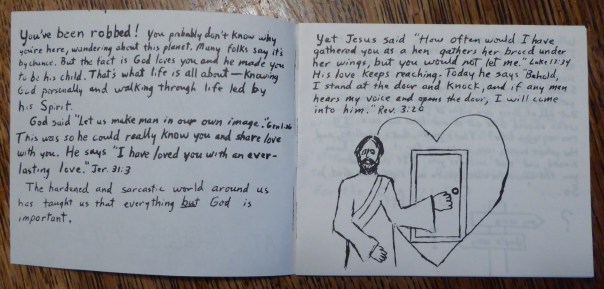 You've been robbed! You probably don't know why
you're here, wandering about this planet. Many folks say it's
by chance. But the fact is God loves you and he made you
to be his child. That's what life is all about — knowing
God personally and walking through life led by
his Spirit.
God said "Let us make man in our own image." Gen 1:26
This was so he could really know you and share love
with you. He says "I have loved you with an ever-
lasting love." Jer. 31:3
The hardened and sarcastic world around us
has taught us that everything but God is
important.
Yet Jesus said "How often would I have
gathered you as a hen gathers her brood under
her wings, but you would not let me." Luke 13:34
His love keeps reaching. Today he says "Behold,
I stand at the door and knock, and if any man
hears my voice and opens the door, I will come
into him." Rev. 3:20